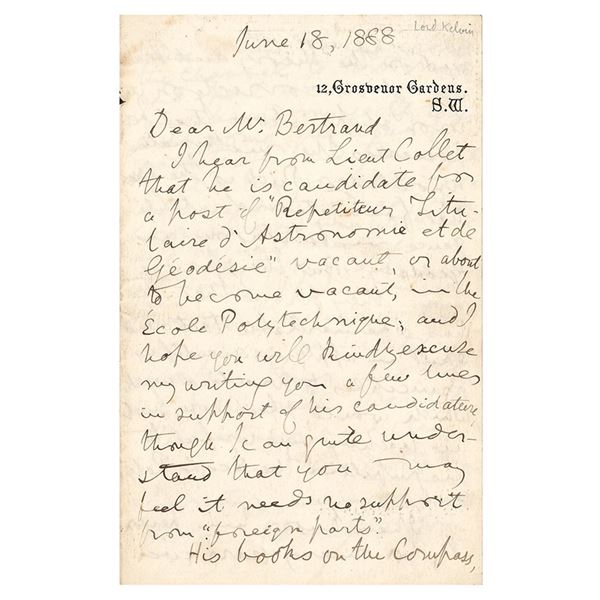 June 18, 1888
Lord Kelvin
12, Grosvenor Gardens.
S.W.
Dear Mr. Bertrand
I hear from Lieut Collet
that he is candidate for
a post of "Repetiteur Titu-
laire d'Astronomie et de
Géodésie" vacant, or about
to become vacant, in the
École Polytechnique; and I
hope you will kindly excuse
my writing you a few lines
in support of his candidature,
though I can quite under-
stand that you may
feel it needs no support
from "foreign parts".
His books on the Compass,